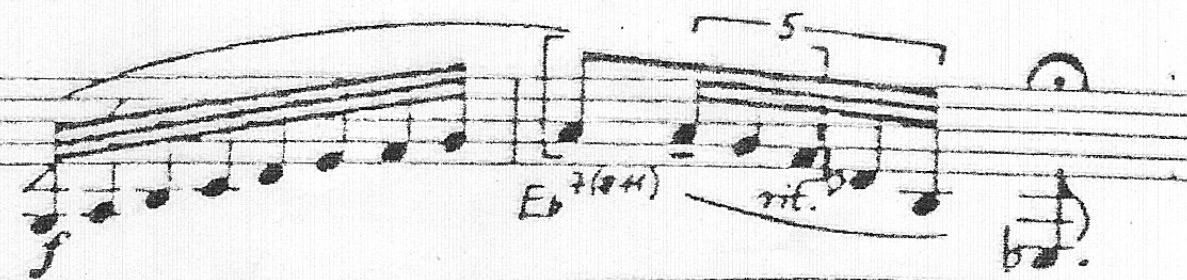 5
Eb7(#11)
rit.
f